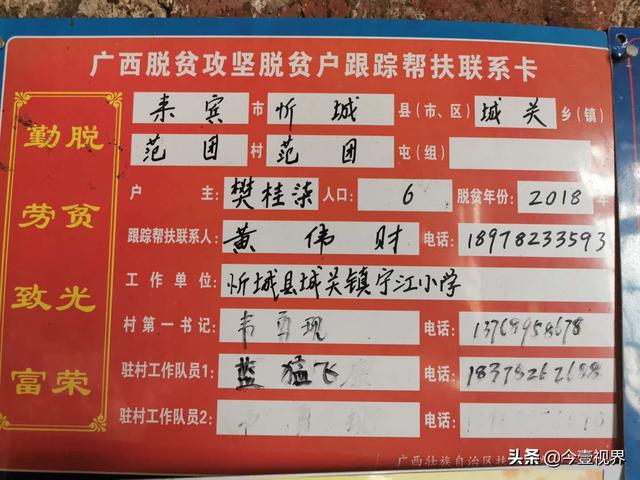 广西脱贫攻坚脱贫户跟踪帮扶联系卡
勤劳致富
脱贫光荣
来宾市忻城县(市、区)城关乡(镇)
范团村范团屯(组)
户主:樊桂柒 人口:6 脱贫年份:2018年
跟踪帮扶联系人:黄伟财 电话:18978233593
工作单位:忻城县城关镇宁江小学
村第一书记:韦勇现 电话:13769958678
驻村工作队员1:蓝猛飞 电话:18378262688
驻村工作队员2: 电话:
广西壮族自治区扶
头条 @今壹视界